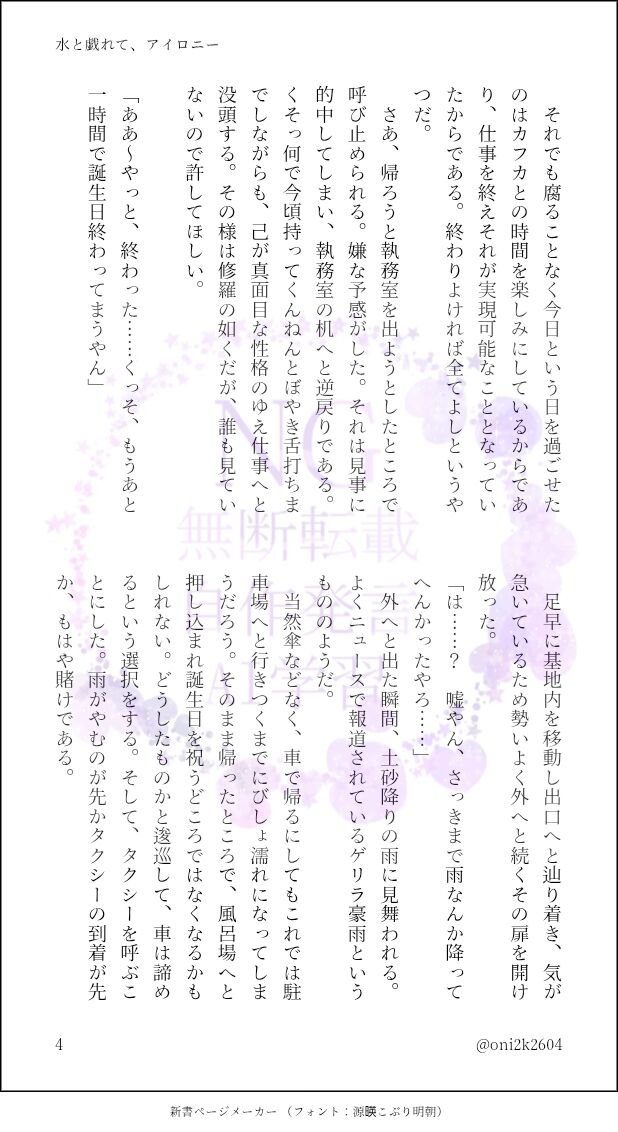 水と戯れて、アイロニー
　それでも腐ることなく今日という日を過ごせた
のはカフカとの時間を楽しみにしているからであ
り、仕事を終えそれが実現可能なこととなってい
たからである。終わりよければ全てよしというや
つだ。
　さあ、帰ろうと執務室を出ようとしたところで
呼び止められる。嫌な予感がした。それは見事に
的中してしまい、執務室の机へと逆戻りである。
くそっ何で今頃持ってくんねんとぼやき舌打ちま
でしながらも、己が真面目な性格のゆえ仕事へと
没頭する。その様は修羅の如くだが、誰も見てい
ないので許してほしい。
「ああ〜やっと、終わった……くっそ、もうあと
一時間で誕生日終わってまうやん」
　足早に基地内を移動し出口へと辿り着き、気が
急いているため勢いよく外へと続くその扉を開け
放った。
「は……？　嘘やん、さっきまで雨なんか降って
へんかったやろ……」
　外へと出た瞬間、土砂降りの雨に見舞われる。
よくニュースで報道されているゲリラ豪雨という
もののようだ。
　当然傘などなく、車で帰るにしてもこれでは駐
車場へと行きつくまでにびしょ濡れになってしま
うだろう。そのまま帰ったところで、風呂場へと
押し込まれ誕生日を祝うどころではなくなるかも
しれない。どうしたものかと逡巡して、車は諦め
るという選択をする。そして、タクシーを呼ぶこ
とにした。雨がやむのが先かタクシーの到着が先
か、もはや賭けである。
NG
無断転載
自作発言
AI学習
4
@oni2k2604
新書ページメーカー（フォント：源暎こぶり明朝）